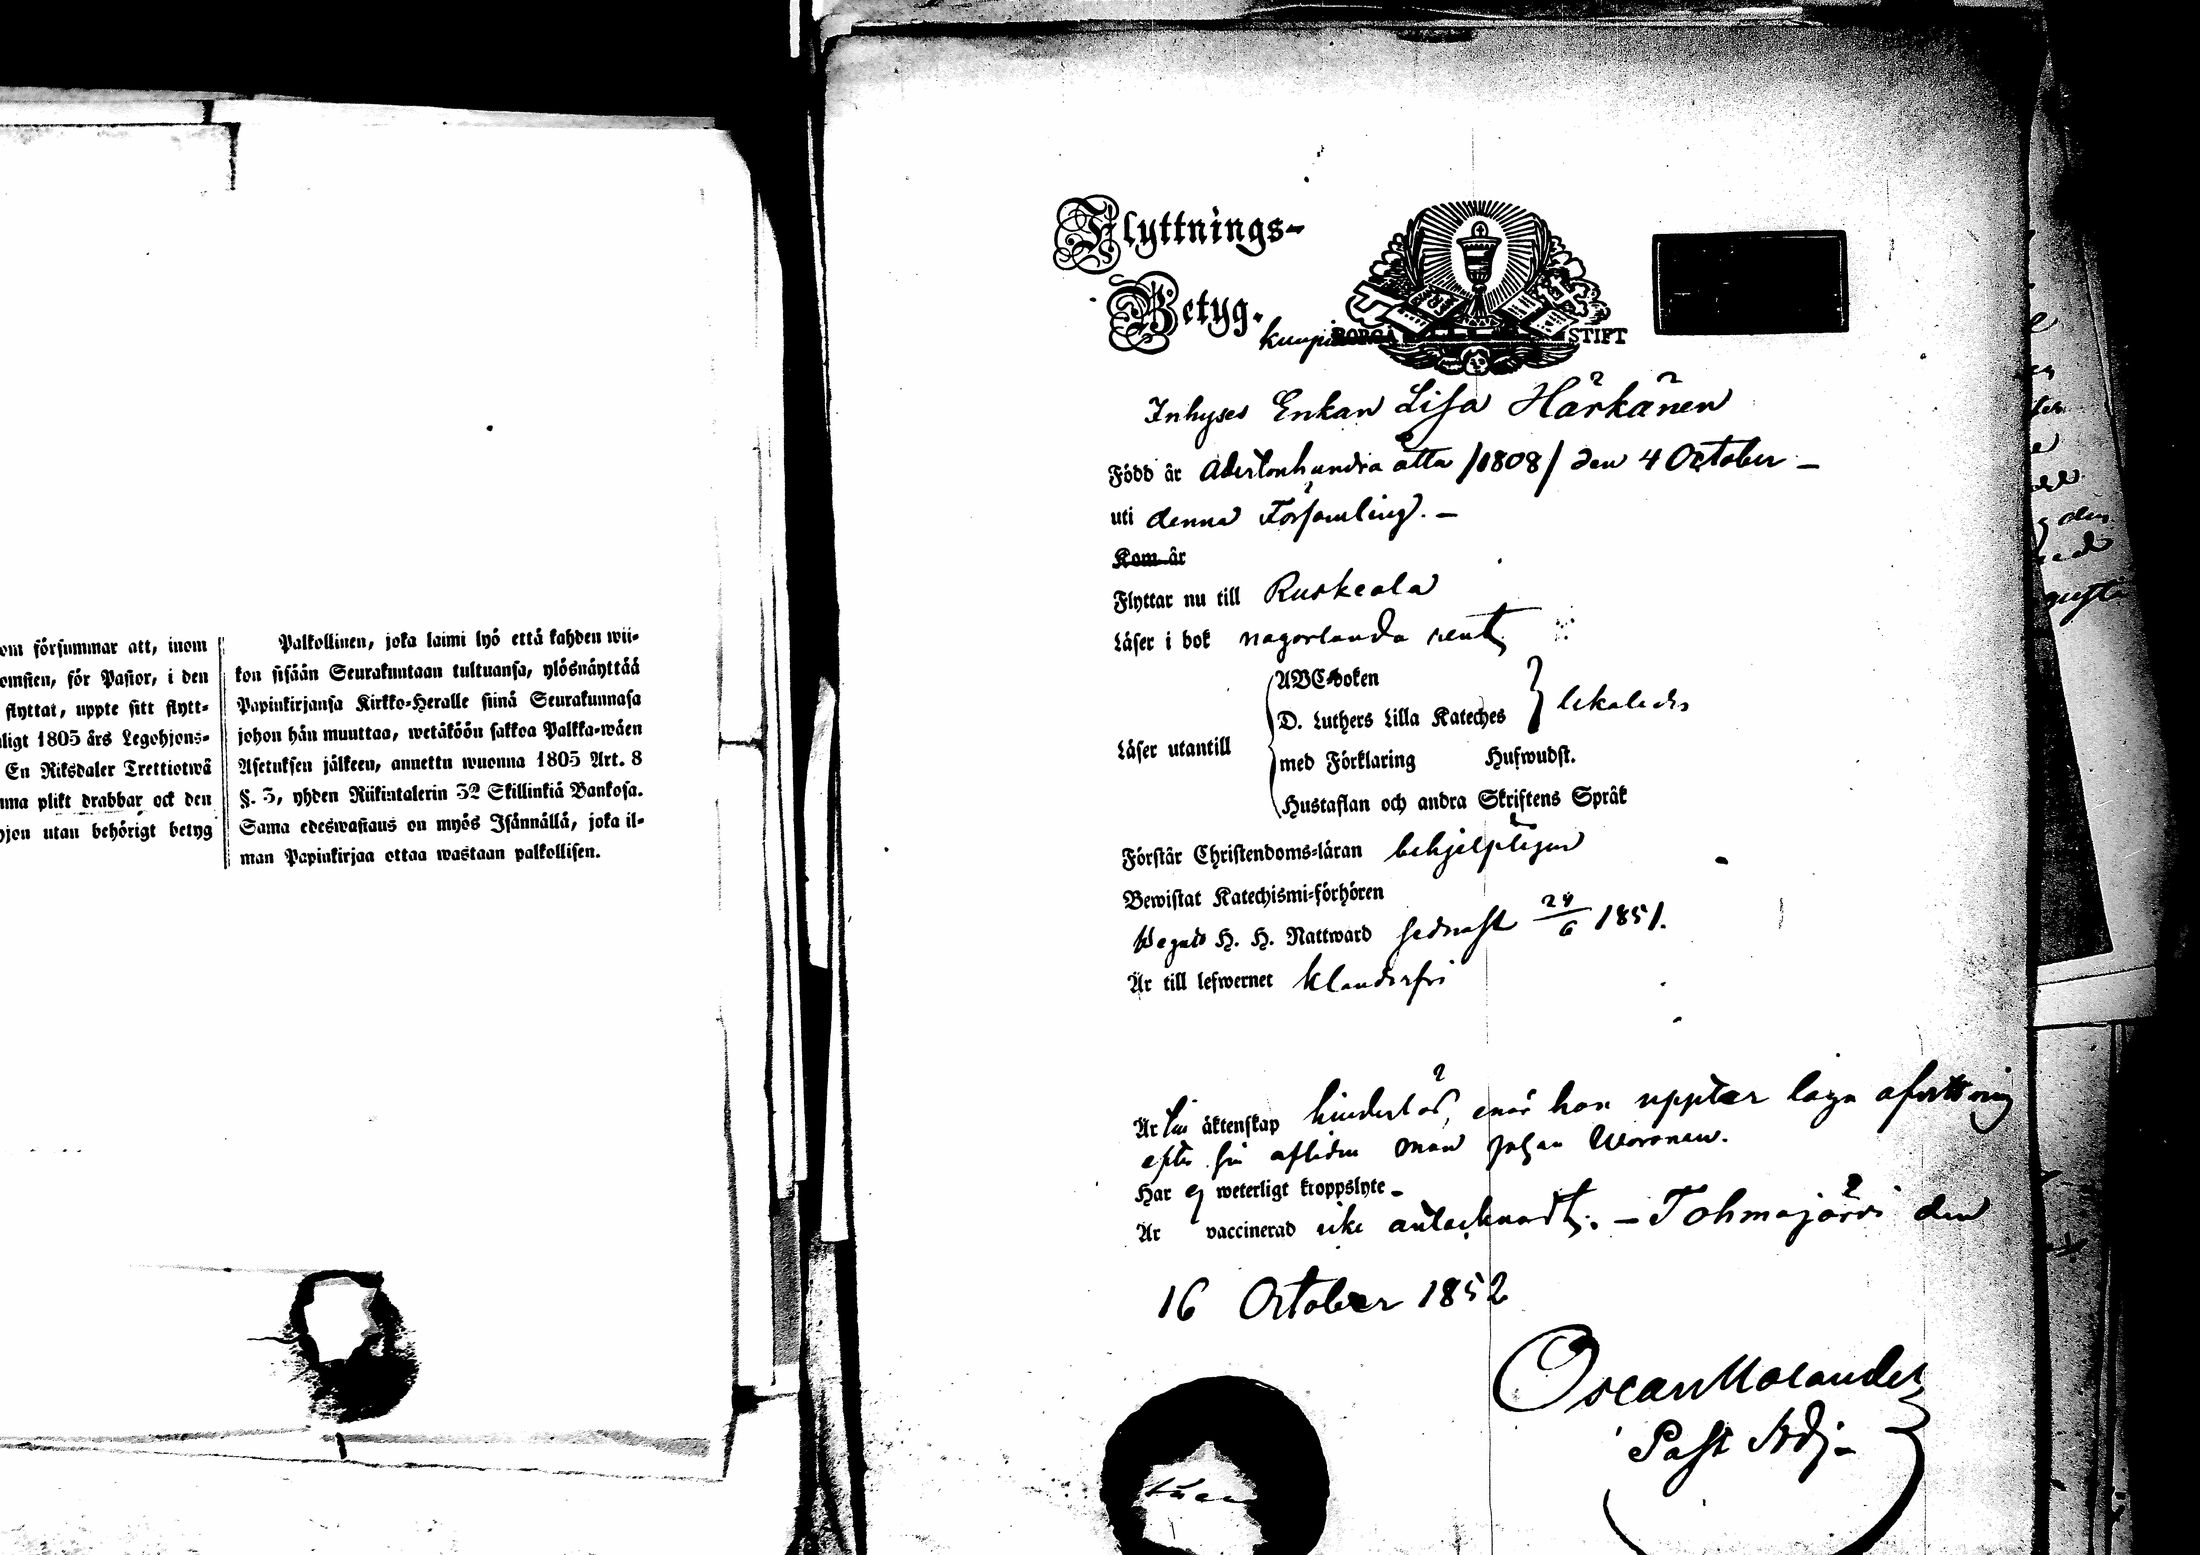 om försummar att, inom
omsten, för Pastor, i den
flyttat, uppte sitt flytt-
ligt 1805 års Legohjons-
En Riksdaler Trettiotwå
nna plikt drabbar ock den
hjon utan behörigt betyg
Palkollinen, joka laimi lyö että kahden wii-
kon sisään Seurakuntaan tultuansa, ylösnäyttää
Papinkirjansa Kirkko-Heralle siinä Seurakunnasa
johon hän muuttaa, wetäköön sakkoa Palkka-wäen
Asetuksen jälkeen, annettu wuonna 1805 Art. 8
§. 3, yhden Riikintalerin 32 Skillinkiä Bankosa.
Sama edeswastaus on myös Isännällä, joka il-
man Papinkirjaa ottaa wastaan palkollisen.
Flyttnings-
Betyg.
kuopio BORGÅ STIFT
Inhyses Enkan Lisa Härkänen
Född år Adertonhundra åtta /1808/ den 4 October –
uti denna Församling. –
Kom år
Flyttar nu till Ruskeala
Läser i bok någorlunda rent
Läser utantill
ABC-boken
D. Luthers Lilla Kateches
med Förklaring Hufwudst.
Hustaflan och andra Skriftens Språk
Förstår Christendoms-läran behjelpligen
Bewistat Katechismi-förhören
Begått H. H. Nattward sednast 24/6 1851.
Är till lefwernet klanderfri
Är till äktenskap hinderlös, enär hon uppter laga afvittring
efter sin aflidne man Johan Woronen.
Har ej weterligt kroppslyte –
Är vaccinerad icke antecknadt. – Tohmajärvi den
16 October 1852
Oscar Molander
Past Adj.